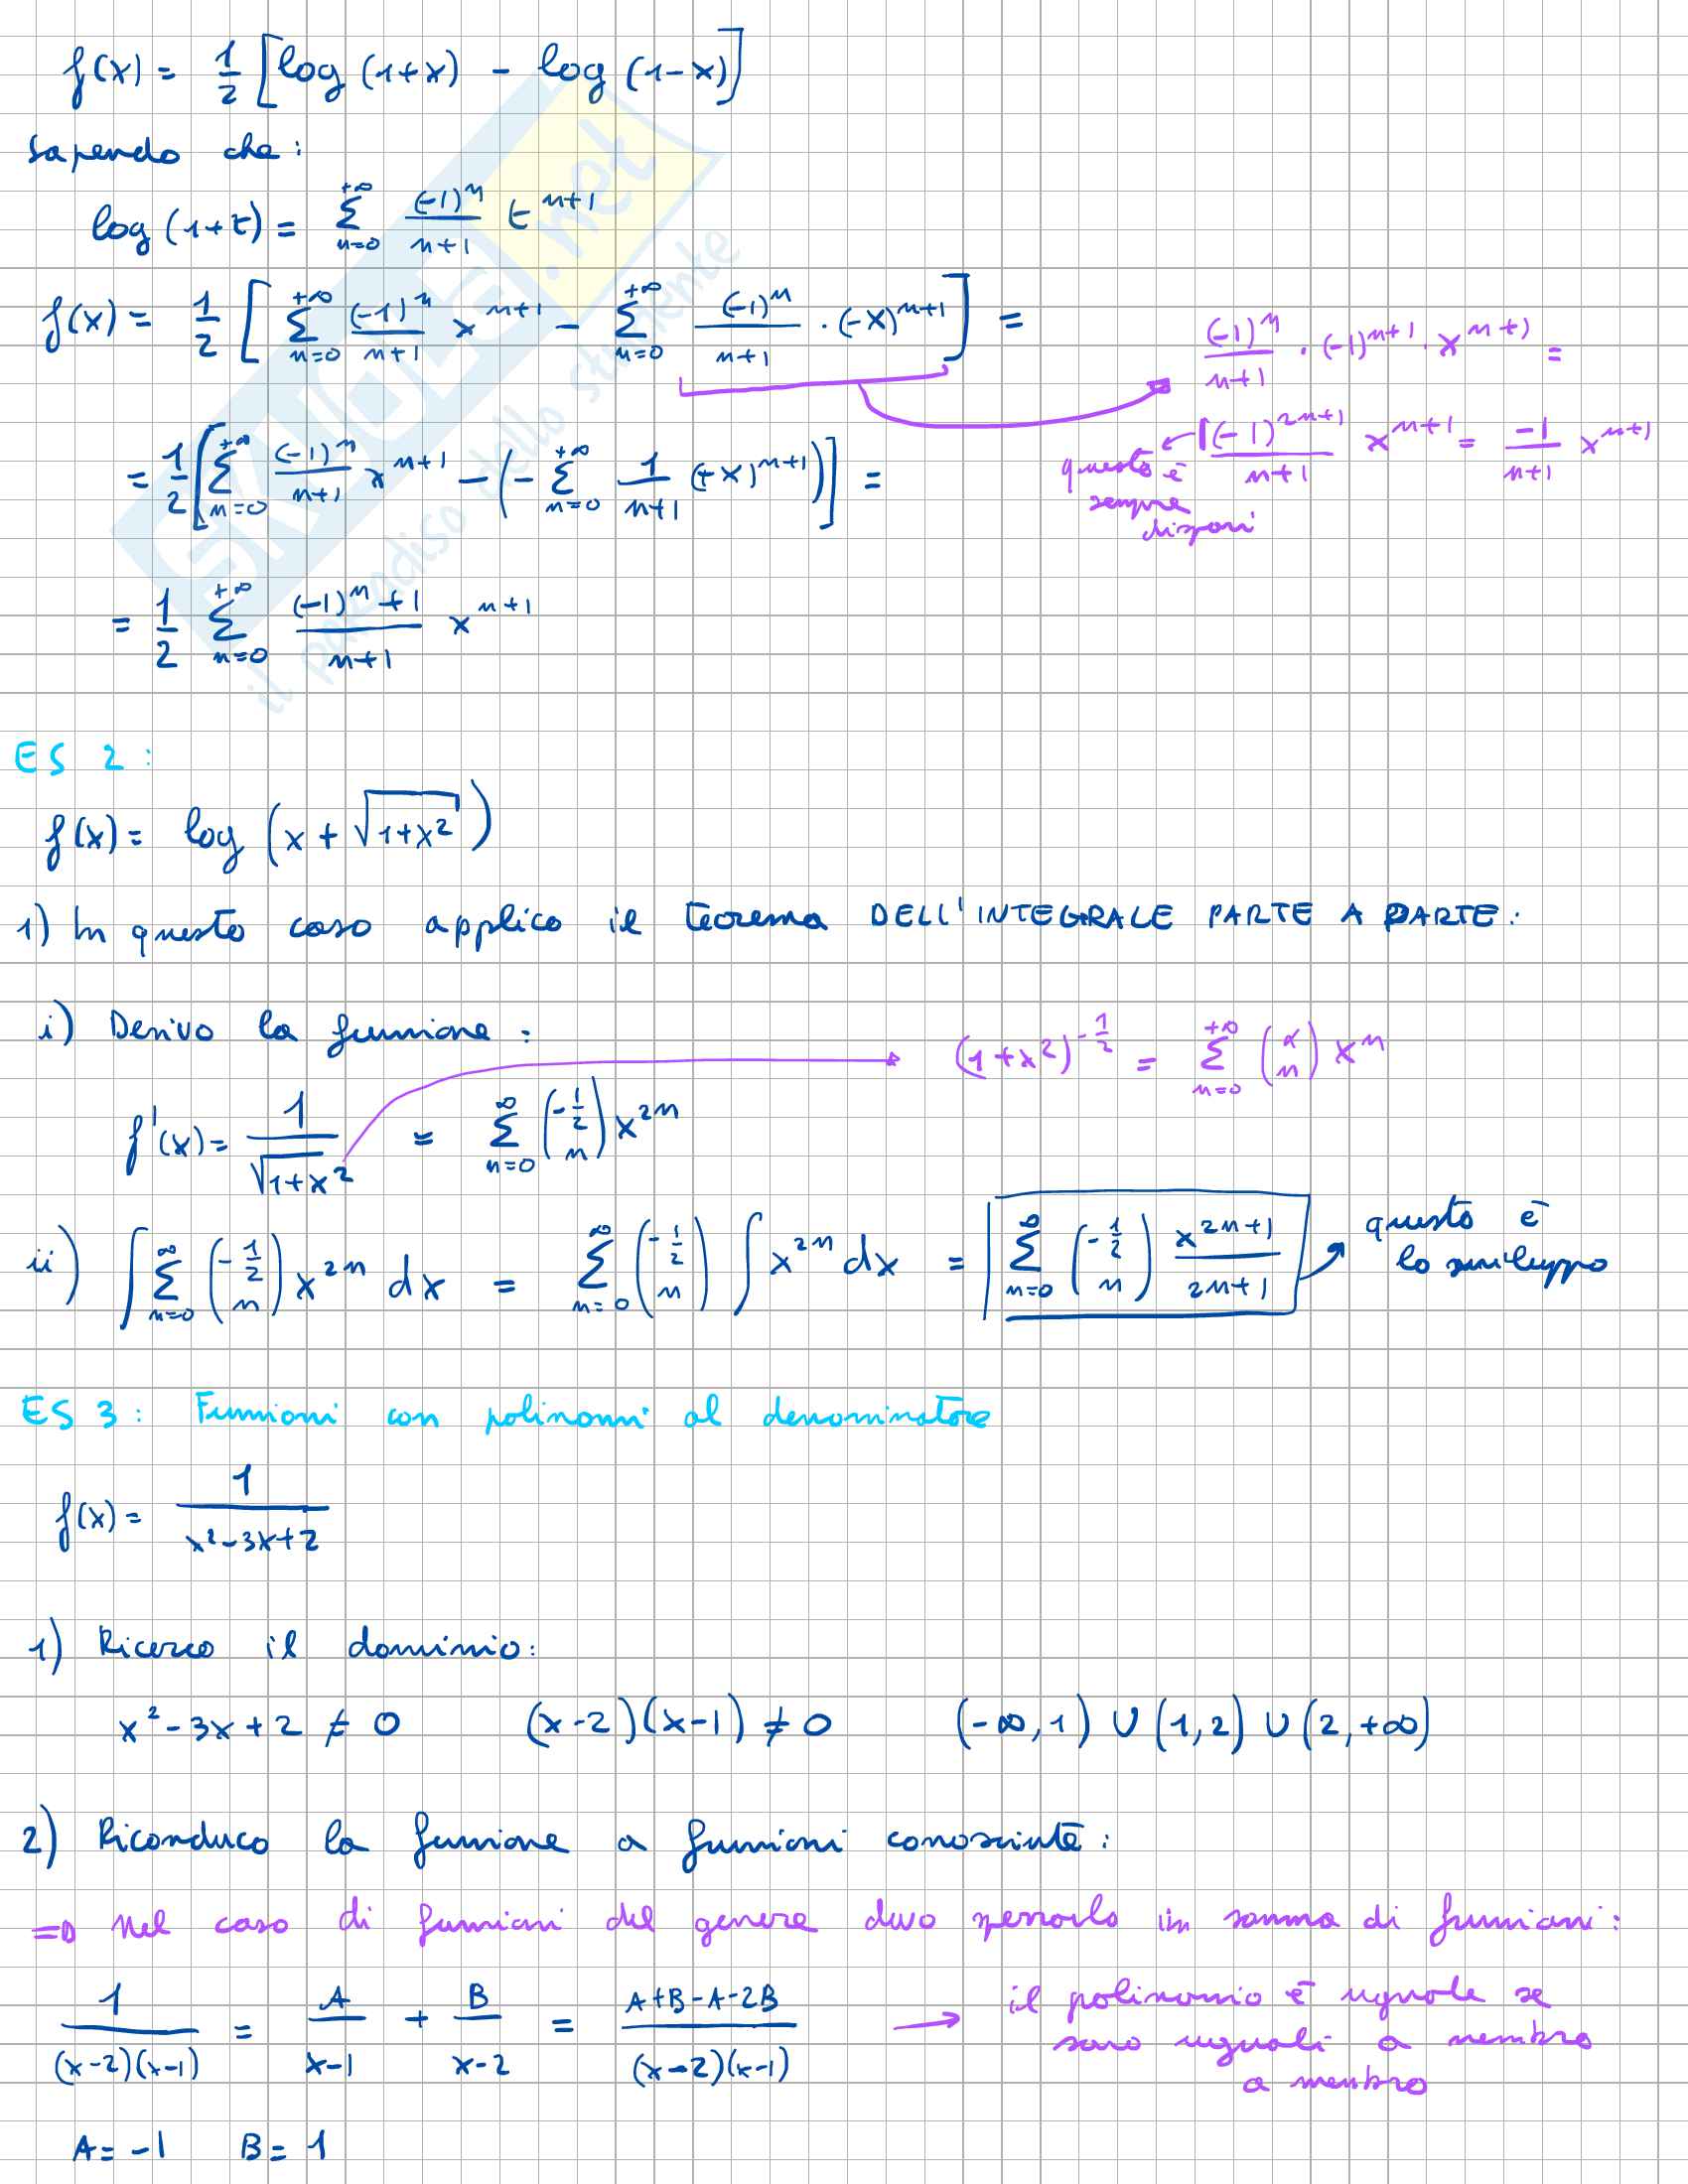 f(x) = 1/2 [log (1+x) - log (1-x)]
sapendo che:
log (1+t) = Σ_{n=0}^{+∞} (-1)^n/(n+1) t^{n+1}
f(x) = 1/2 [ Σ_{n=0}^{+∞} (-1)^n/(n+1) x^{n+1} - Σ_{n=0}^{+∞} (-1)^n/(n+1) · (-x)^{n+1} ] =
(-1)^n/(n+1) · (-1)^{n+1} · x^{n+1} =
(-1)^{2n+1}/(n+1) x^{n+1} = -1/(n+1) x^{n+1}
questo è
sempre
dispari
= 1/2 [ Σ_{n=0}^{+∞} (-1)^n/(n+1) x^{n+1} - (- Σ_{n=0}^{+∞} 1/(n+1) (+x)^{n+1}) ] =
= 1/2 Σ_{n=0}^{+∞} ((-1)^n + 1)/(n+1) x^{n+1}
SKUOLA.net
il paradiso dello studente
ES 2:
f(x) = log (x + √(1+x²))
1) In questo caso applico il teorema DELL'INTEGRALE PARTE A PARTE:
i) Derivo la funzione:
(1+x²)^{-1/2} = Σ_{n=0}^{+∞} (α n) x^n
f'(x) = 1/√(1+x²) = Σ_{n=0}^{∞} (-1/2 n) x^{2n}
ii) ∫ Σ_{n=0}^{∞} (-1/2 n) x^{2n} dx = Σ_{n=0}^{∞} (-1/2 n) ∫ x^{2n} dx = Σ_{n=0}^{∞} (-1/2 n) x^{2n+1}/(2n+1)
questo è
lo sviluppo
ES 3: Funzioni con polinomi al denominatore
f(x) = 1/(x²-3x+2)
1) Ricerco il dominio:
x²-3x+2 ≠ 0 (x-2)(x-1) ≠ 0 (-∞,1) ∪ (1,2) ∪ (2,+∞)
2) Riconduco la funzione a funzioni conosciute:
⇒ Nel caso di funzioni del genere devo spezzarlo in somma di funzioni:
1/((x-2)(x-1)) = A/(x-1) + B/(x-2) = (A+B-A-2B)/((x-2)(x-1))
→ il polinomio è uguale se
sono uguali a membro
a membro
A = -1 B = 1